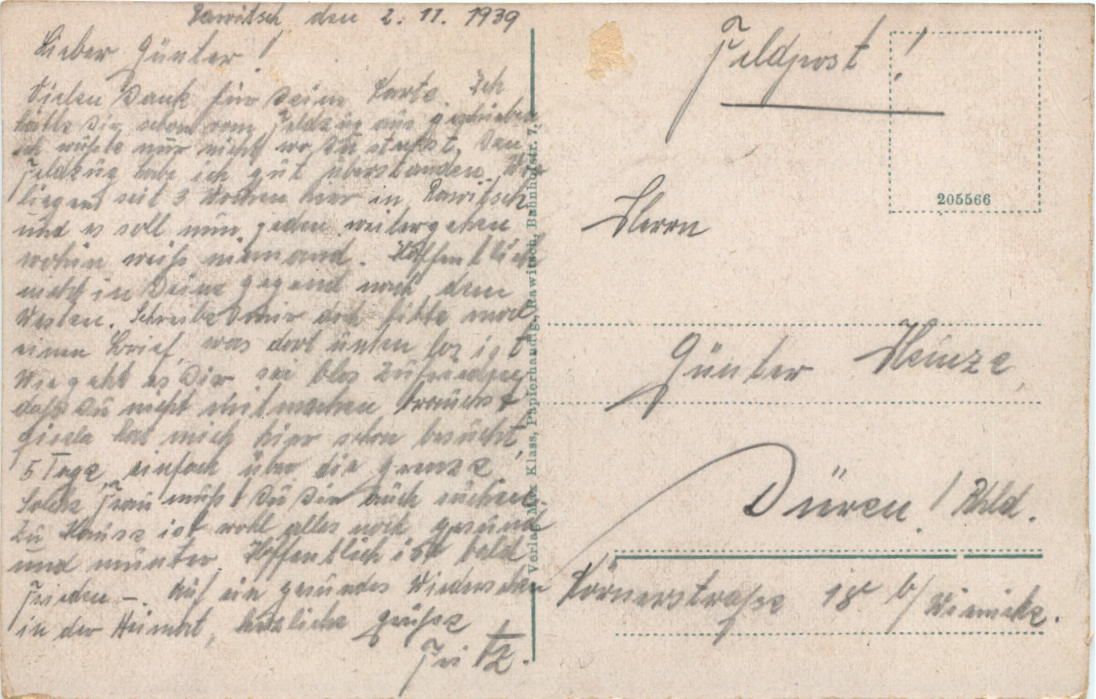 Rawitsch, den 2. 11. 1939
Lieber Günter!
Vielen Dank für Deine Karte. Ich
hätte Dir schon vom Feldzug aus geschrieben
ich wußte nur nicht wo Du steckst. Den
Feldzug habe ich gut überstanden. Wir
liegen seit 3 Wochen hier in Rawitsch
und es soll nun jeden weitergehen
wohin weiß niemand. Hoffentlich
nicht in Deine Gegend nach dem
Westen. Schreibe mir doch bitte mal
einen Brief, was dort unten los ist
Wie geht es Dir, sei blos zufrieden
daß Du nicht mitmachen brauchst
Gisela hat mich hier schon besucht,
5 Tage, einfach über die Grenze,
Solche Frau mußt Du Dir auch suchen.
Zu Hause ist wohl alles noch gesund
und munter. Hoffentlich ist bald
Frieden – Auf ein gesundes Wiedersehen
in der Heimat, herzliche Grüße
Fritz.
Verlag: Max Klass, Papierhandlg., Rawitsch, Bahnhofstr. 7.
Feldpost!
205566
Herrn
Günter Heinze
Düren! Rhld.
Körnerstraße 18 b/ Wienicke.